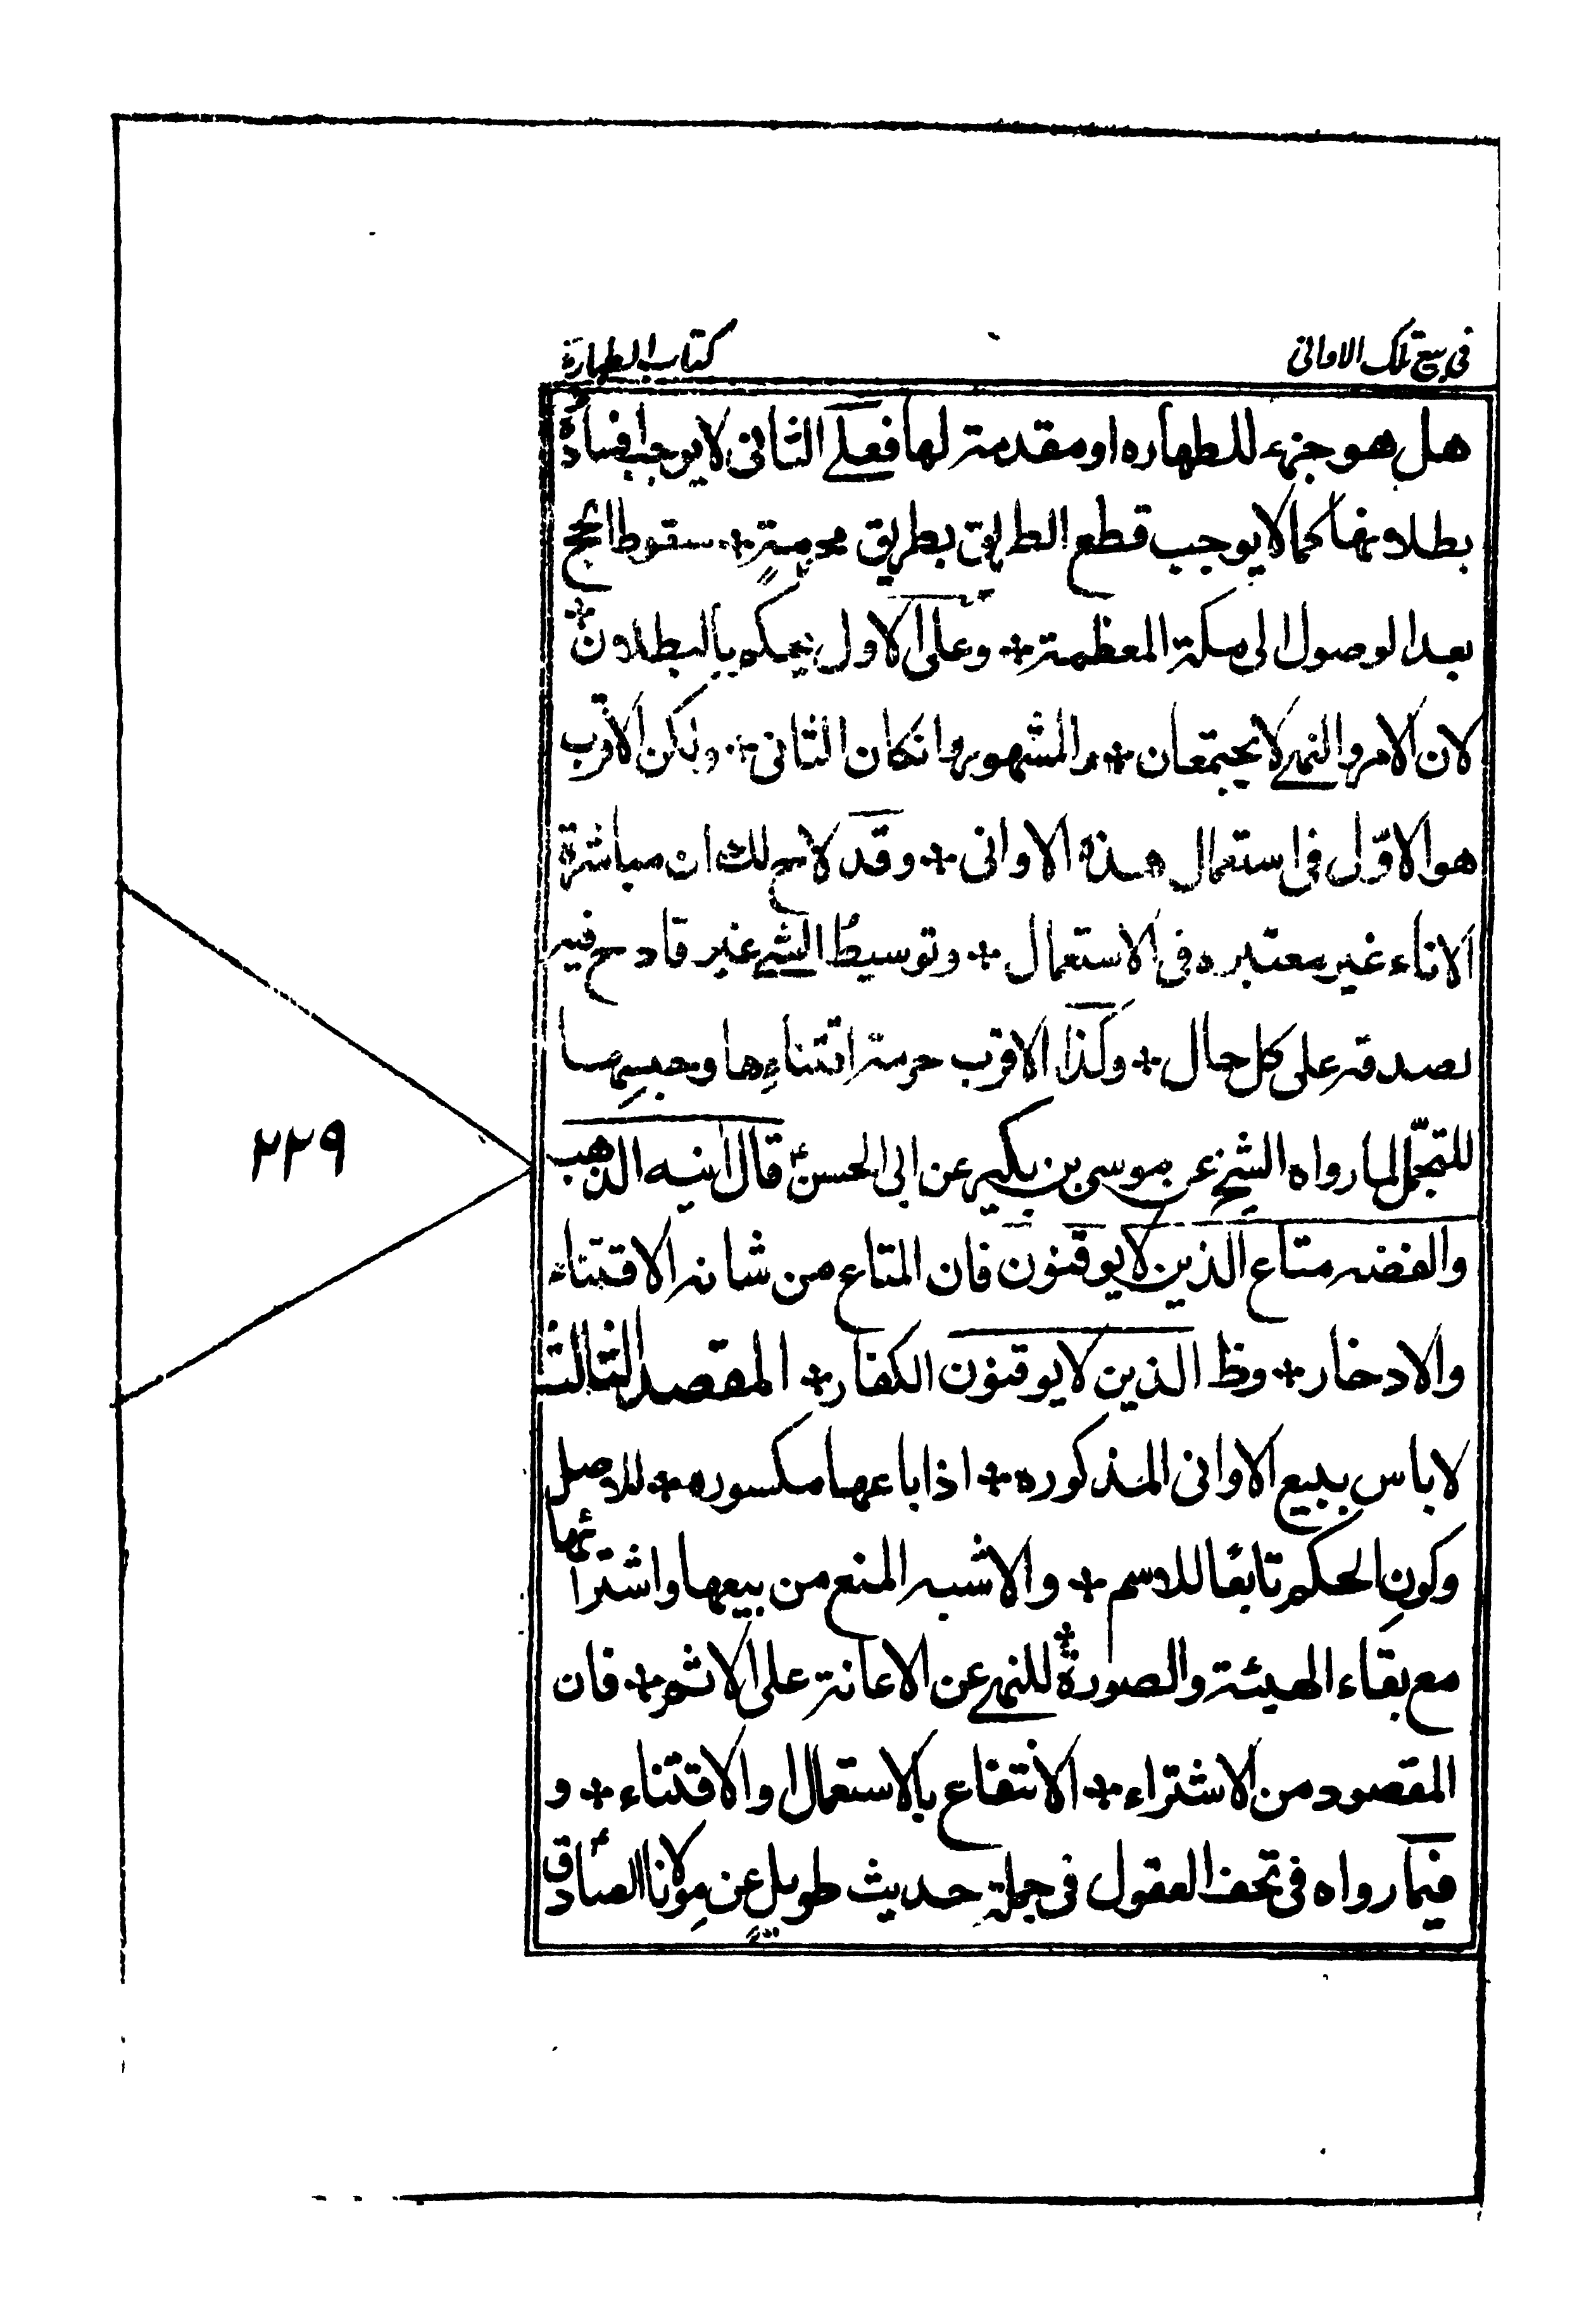 في بيع تلك الاواني
كتاب الطهارة
هل هو جزء للطهاره او مقدمة لها فعلى الثانى لا يوجب افساده
بطلانها كما لا يوجب قطع الطريق بطريق محرمةٍ سقوط الحج
بعد الوصول الى مكة المعظمة وعلى الاول يحكم بالبطلان
لان الامر والنهى لا يجتمعان والمشهور وانكان الثانى ولكن الاقرب
هو الاوّل فى استعمال هذه الاوانى وقد لاح لك ان مباشرة
الاناء غير معتبره فى الاستعمال وتوسيط الشىء غير قادح فيه
لصدقه على كل حال وكذا الاقرب حرمة اقتناءِها وحبسِها
للتجمّل لما رواه الشيخ عن موسى بن بكير عن ابى الحسنؑ قال انيه الذهب
والفضه متاع الذين لا يوقنون فان المتاع من شانه الاقتناء
والادخار وظ الذين لا يوقنون الكفار المقصد الثالث
لا باس ببيع الاوانى المذكوره اذا باعها مكسوره للاصل
وكونِ الحكم تابعًا للاسم والاشبه المنع من بيعها واشترائها
مع بقاء الهيئة والصورة للنهى عن الاعانة على الاثم فان
المقصود من الاشتراء الانتفاع بالاستعمال والاقتناء و
فيما رواه فى تحف العقول فى جملة حديث طويلٍ عن مولانا الصادقؑ
٢٢٩